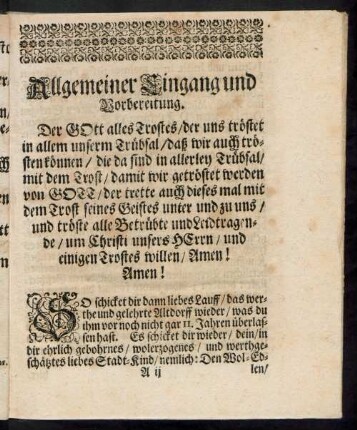 Allgemeiner Eingang und
Vorbereitung.
Der GOtt alles Trostes / der uns tröstet
in allem unserm Trübsal / daß wir auch trö-
sten können / die da sind in allerley Trübsal /
mit dem Trost / damit wir getröstet werden
von GOTT / der trette auch dieses mal mit
dem Trost seines Geistes unter und zu uns /
und tröste alle Betrübte und Leidtragen-
de / um Christi unsers HErrn / und
einigen Trostes willen / Amen!
Amen!
SO schicket dir dann liebes Lauff / das wer-
the und gelehrte Altdorff wieder / was du
ihm vor noch nicht gar 11. Jahren überlas-
sen hast. Es schicket dir wieder / dein / in
dir ehrlich gebohrnes / wolerzogenes / und werthge-
schätztes liebes Stadt-Kind / nemlich: Den Wol-Ed-
A ij len /